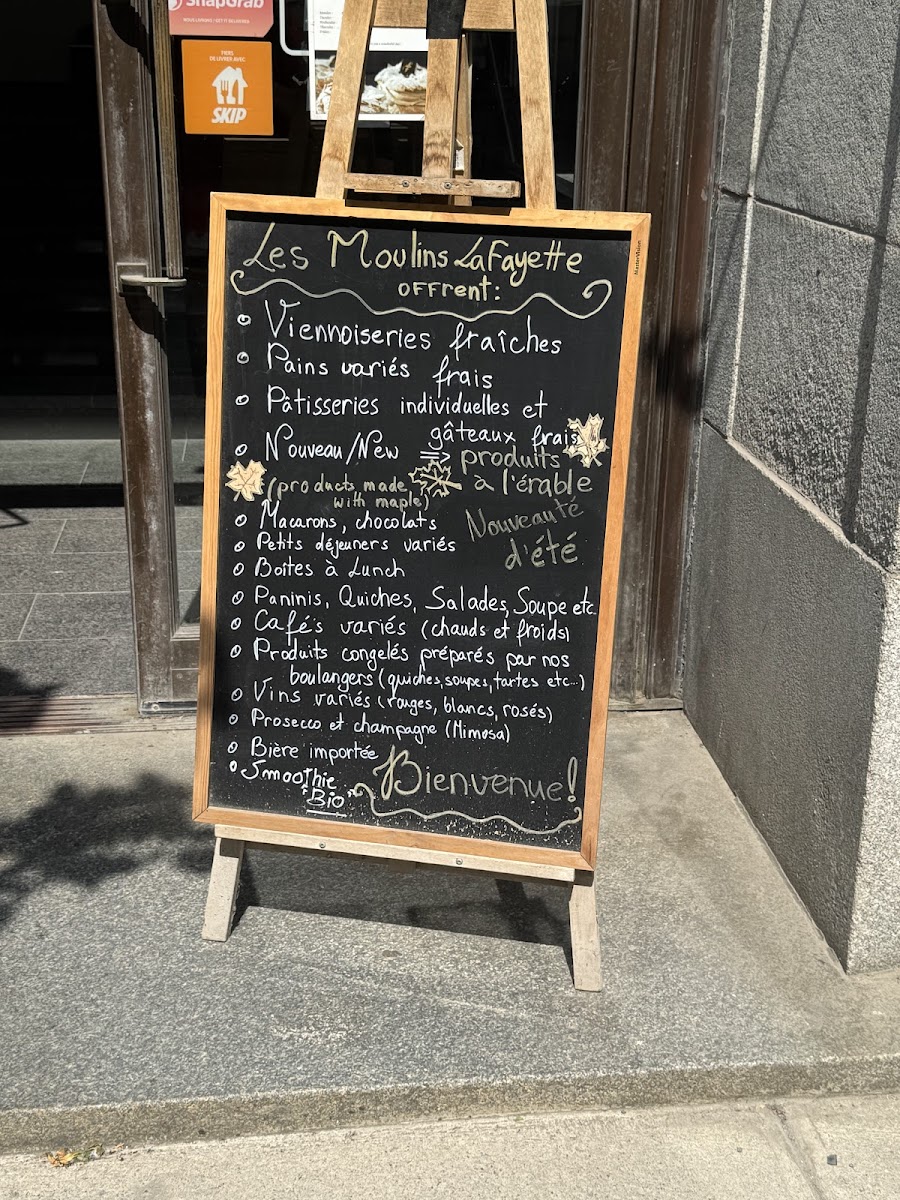 SnapGrab
NOUS LIVRONS / GET IT DELIVERED
FIERS
DE LIVRER AVEC
SKIP
MasterVision
Les Moulins LaFayette
OFFrent:
Viennoiseries fraîches
Pains variés frais
Pâtisseries individuelles et
gâteaux frais
Nouveau/New => produits
à l'érable
(products made
with maple)
Nouveauté
d'été
Macarons, chocolats
Petits déjeuners variés
Boîtes à Lunch
Paninis, Quiches, Salades, Soupe etc.
Café's variés (chauds et froids)
Produits congelés préparés par nos
boulangers (quiches, soupes, tartes etc...)
Vins variés (rouges, blancs, rosés)
Prosecco et champagne (Mimosa)
Bière importée
Smoothie
"Bio"
Bienvenue!